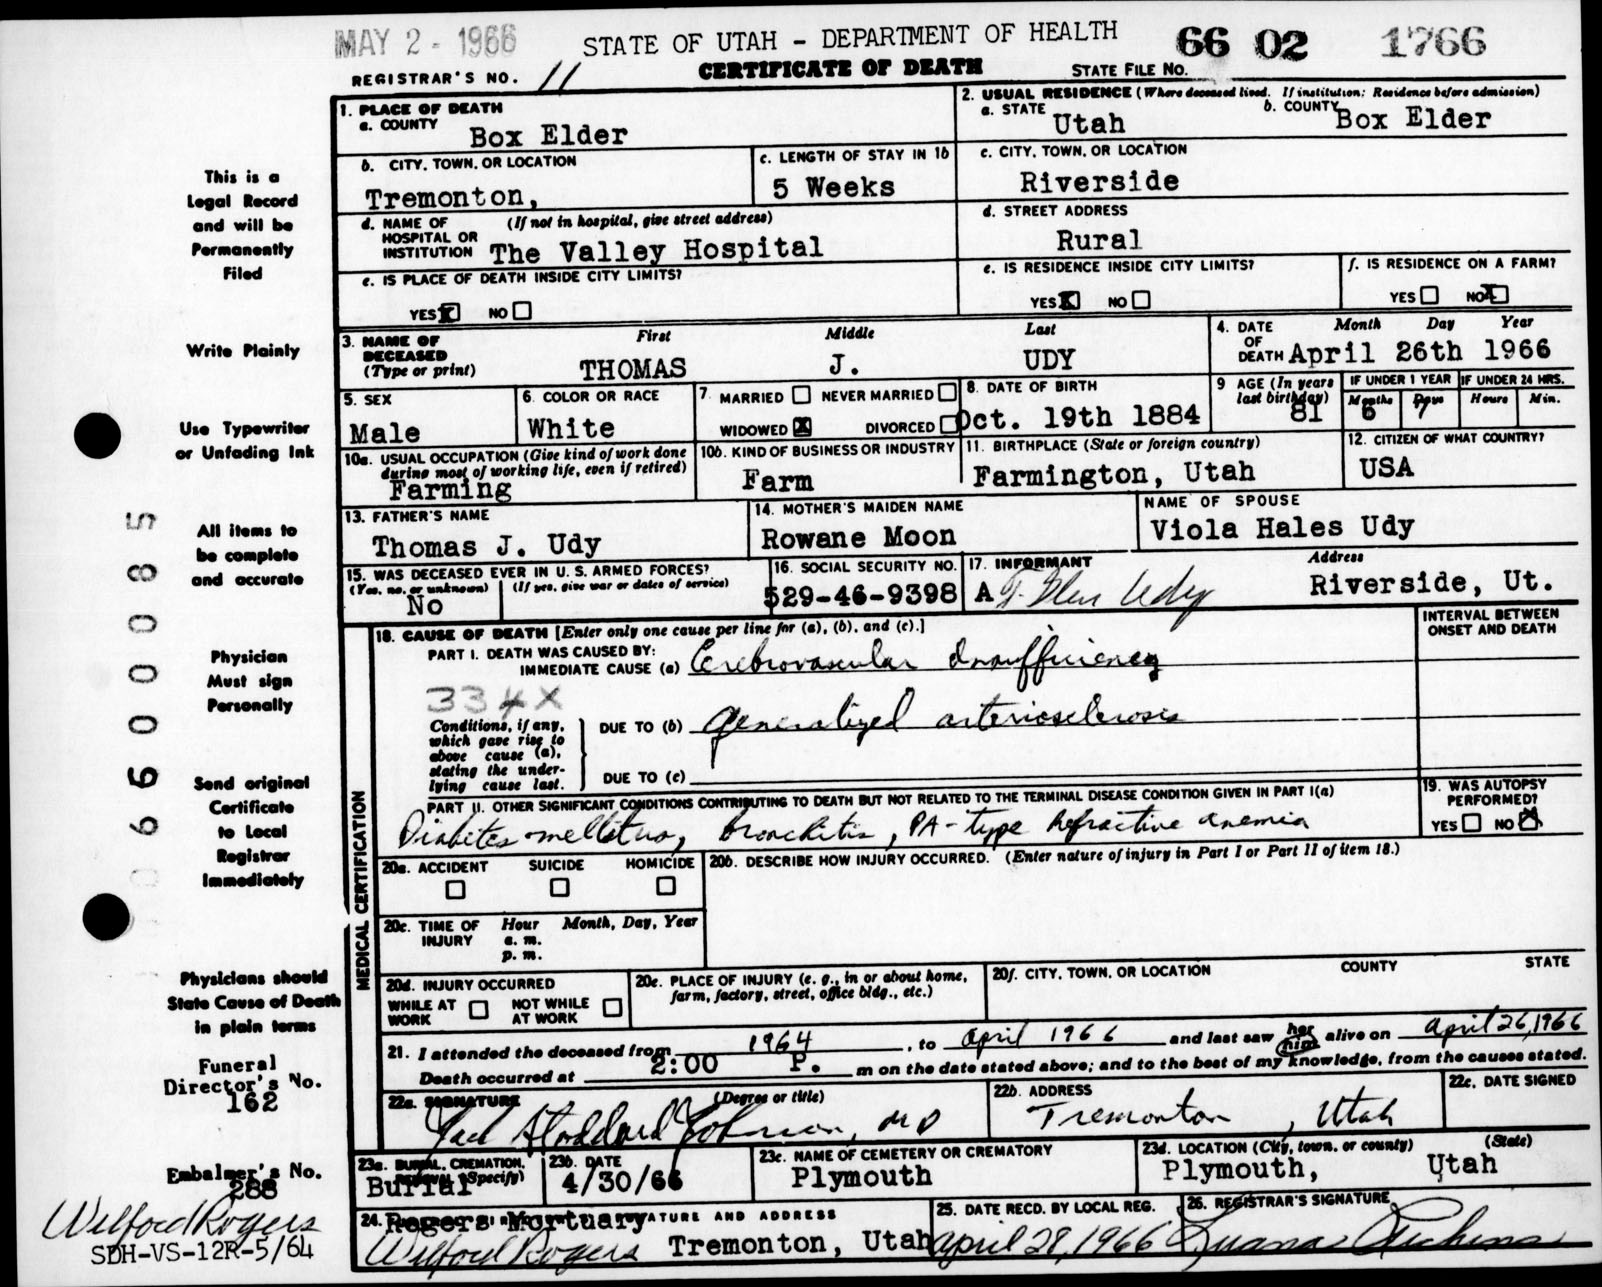 MAY 2 - 1966
STATE OF UTAH - DEPARTMENT OF HEALTH
66 02 1766
REGISTRAR'S NO. 11
CERTIFICATE OF DEATH
STATE FILE NO.
This is a
Legal Record
and will be
Permanently
Filed
Write Plainly
Use Typewriter
or Unfading Ink
All items to
be complete
and accurate
Physician
Must sign
Personally
Send original
Certificate
to Local
Registrar
Immediately
Physicians should
State Cause of Death
in plain terms
Funeral
Director's No.
162
Embalmer's No.
288
Wilford Rogers
SDH-VS-12R-5/64
1. PLACE OF DEATH
a. COUNTY Box Elder
2. USUAL RESIDENCE (Where deceased lived. If institution: Residence before admission)
a. STATE Utah b. COUNTY Box Elder
b. CITY, TOWN, OR LOCATION
Tremonton,
c. LENGTH OF STAY IN 1b
5 Weeks
c. CITY, TOWN, OR LOCATION
Riverside
d. NAME OF HOSPITAL OR INSTITUTION (If not in hospital, give street address)
The Valley Hospital
d. STREET ADDRESS
Rural
e. IS PLACE OF DEATH INSIDE CITY LIMITS?
YES X NO
e. IS RESIDENCE INSIDE CITY LIMITS?
YES X NO
f. IS RESIDENCE ON A FARM?
YES NO X
3. NAME OF DECEASED (Type or print)
First Middle Last
THOMAS J. UDY
4. DATE OF DEATH Month Day Year
April 26th 1966
5. SEX
Male
6. COLOR OR RACE
White
7. MARRIED NEVER MARRIED
WIDOWED X DIVORCED
8. DATE OF BIRTH
Oct. 19th 1884
9 AGE (In years last birthday)
81
IF UNDER 1 YEAR
Months Days
6 7
IF UNDER 24 HRS.
Hours Min.
10a. USUAL OCCUPATION (Give kind of work done during most of working life, even if retired)
Farming
10b. KIND OF BUSINESS OR INDUSTRY
Farm
11. BIRTHPLACE (State or foreign country)
Farmington, Utah
12. CITIZEN OF WHAT COUNTRY?
USA
13. FATHER'S NAME
Thomas J. Udy
14. MOTHER'S MAIDEN NAME
Rowane Moon
NAME OF SPOUSE
Viola Hales Udy
15. WAS DECEASED EVER IN U. S. ARMED FORCES?
(Yes, no, or unknown) (If yes, give war or dates of service)
No
16. SOCIAL SECURITY NO.
529-46-9398
17. INFORMANT Address
A Udy Riverside, Ut.
18. CAUSE OF DEATH [Enter only one cause per line for (a), (b), and (c).]
INTERVAL BETWEEN ONSET AND DEATH
PART I. DEATH WAS CAUSED BY:
IMMEDIATE CAUSE (a) Cerebrovascular Insufficiency
334X
Conditions, if any, which gave rise to above cause (a), stating the underlying cause last.
DUE TO (b) generalized arteriosclerosis
DUE TO (c)
PART II. OTHER SIGNIFICANT CONDITIONS CONTRIBUTING TO DEATH BUT NOT RELATED TO THE TERMINAL DISEASE CONDITION GIVEN IN PART I(a)
Diabetes mellitus, bronchitis, PA-type Refractive anemia
19. WAS AUTOPSY PERFORMED?
YES NO X
20a. ACCIDENT SUICIDE HOMICIDE
20b. DESCRIBE HOW INJURY OCCURRED. (Enter nature of injury in Part I or Part II of item 18.)
20c. TIME OF INJURY Hour Month, Day, Year
a. m.
p. m.
20d. INJURY OCCURRED
WHILE AT WORK NOT WHILE AT WORK
20e. PLACE OF INJURY (e. g., in or about home, farm, factory, street, office bldg., etc.)
20f. CITY, TOWN, OR LOCATION COUNTY STATE
MEDICAL CERTIFICATION
21. I attended the deceased from 1964, to April 1966 and last saw her him alive on April 26, 1966
Death occurred at 2:00 P. m on the date stated above; and to the best of my knowledge, from the causes stated.
22a. SIGNATURE (Degree or title)
Jack Stoddard Johnson, MD
22b. ADDRESS
Tremonton, Utah
22c. DATE SIGNED
23a. BURIAL, CREMATION, (Specify)
Burial
23b. DATE
4/30/66
23c. NAME OF CEMETERY OR CREMATORY
Plymouth
23d. LOCATION (City, town, or county) (State)
Plymouth, Utah
24. SIGNATURE AND ADDRESS
Rogers Mortuary
Wilford Rogers Tremonton, Utah
25. DATE RECD. BY LOCAL REG.
April 28, 1966
26. REGISTRAR'S SIGNATURE